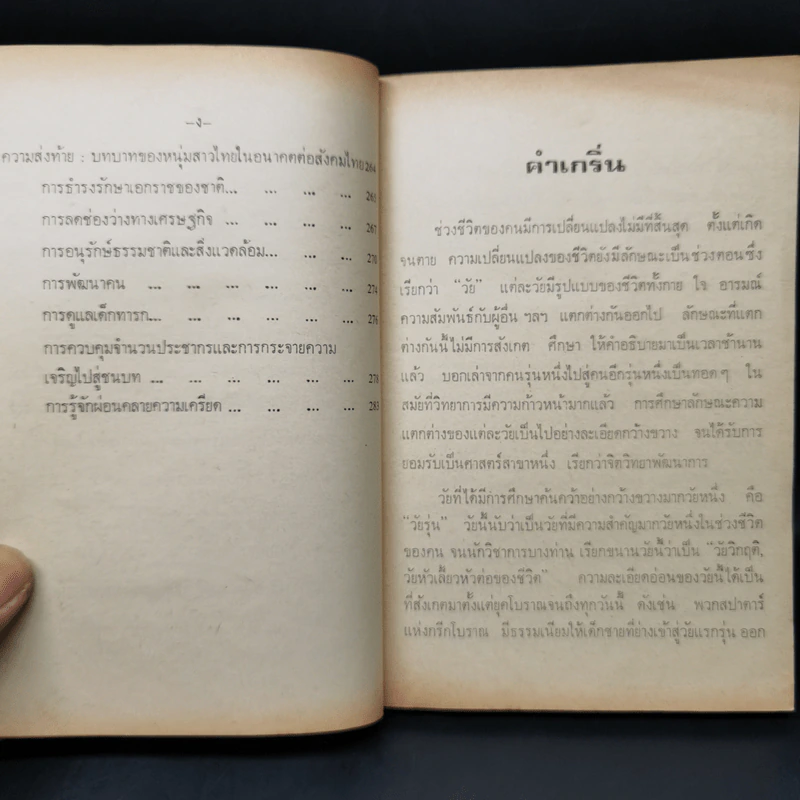 –ง–
ความส่งท้าย : บทบาทของหนุ่มสาวไทยในอนาคตต่อสังคมไทย 264
การธำรงรักษาเอกราชของชาติ... ... ... ...
การลดช่องว่างทางเศรษฐกิจ ... ... ... ... 267
การอนุรักษ์ธรรมชาติและสิ่งแวดล้อม... ... ... 270
การพัฒนาคน ... ... ... ... ... 274
การดูแลเด็กทารก... ... ... ... ... 276
การควบคุมจำนวนประชากรและการกระจายความ
เจริญไปสู่ชนบท ... ... ... ... ... 278
การรู้จักผ่อนคลายความเครียด ... ... ... ... 283
คำเกริ่น
ช่วงชีวิตของคนมีการเปลี่ยนแปลงไม่มีที่สิ้นสุด ตั้งแต่เกิด
จนตาย ความเปลี่ยนแปลงของชีวิตยังมีลักษณะเป็นช่วงตอนซึ่ง
เรียกว่า “วัย” แต่ละวัยมีรูปแบบของชีวิตทั้งกาย ใจ อารมณ์
ความสัมพันธ์กับผู้อื่น ฯลฯ แตกต่างกันออกไป ลักษณะที่แตก
ต่างกันนี้ไม่มีการสังเกต ศึกษา ให้คำอธิบายมาเป็นเวลาช้านาน
แล้ว บอกเล่าจากคนรุ่นหนึ่งไปสู่คนอีกรุ่นหนึ่งเป็นทอดๆ ใน
สมัยที่วิทยาการมีความก้าวหน้ามากแล้ว การศึกษาลักษณะความ
แตกต่างของแต่ละวัยเป็นไปอย่างละเอียดกว้างขวาง จนได้รับการ
ยอมรับเป็นศาสตร์สาขาหนึ่ง เรียกว่าจิตวิทยาพัฒนาการ
วัยที่ได้มีการศึกษาค้นคว้าอย่างกว้างขวางมากวัยหนึ่ง คือ
“วัยรุ่น” วัยนี้นับว่าเป็นวัยที่มีความสำคัญมากวัยหนึ่งในช่วงชีวิต
ของคน จนนักวิชาการบางท่าน เรียกขนานวัยนี้ว่าเป็น “วัยวิกฤติ,
วัยหัวเลี้ยวหัวต่อของชีวิต” ความละเอียดอ่อนของวัยนี้ได้เป็น
ที่สังเกตมาตั้งแต่ยุคโบราณจนถึงทุกวันนี้ ดังเช่น พวกสปาตาร์
แห่งกรีกโบราณ มีธรรมเนียมให้เด็กชายที่ย่างเข้าสู่วัยแรกรุ่น ออก